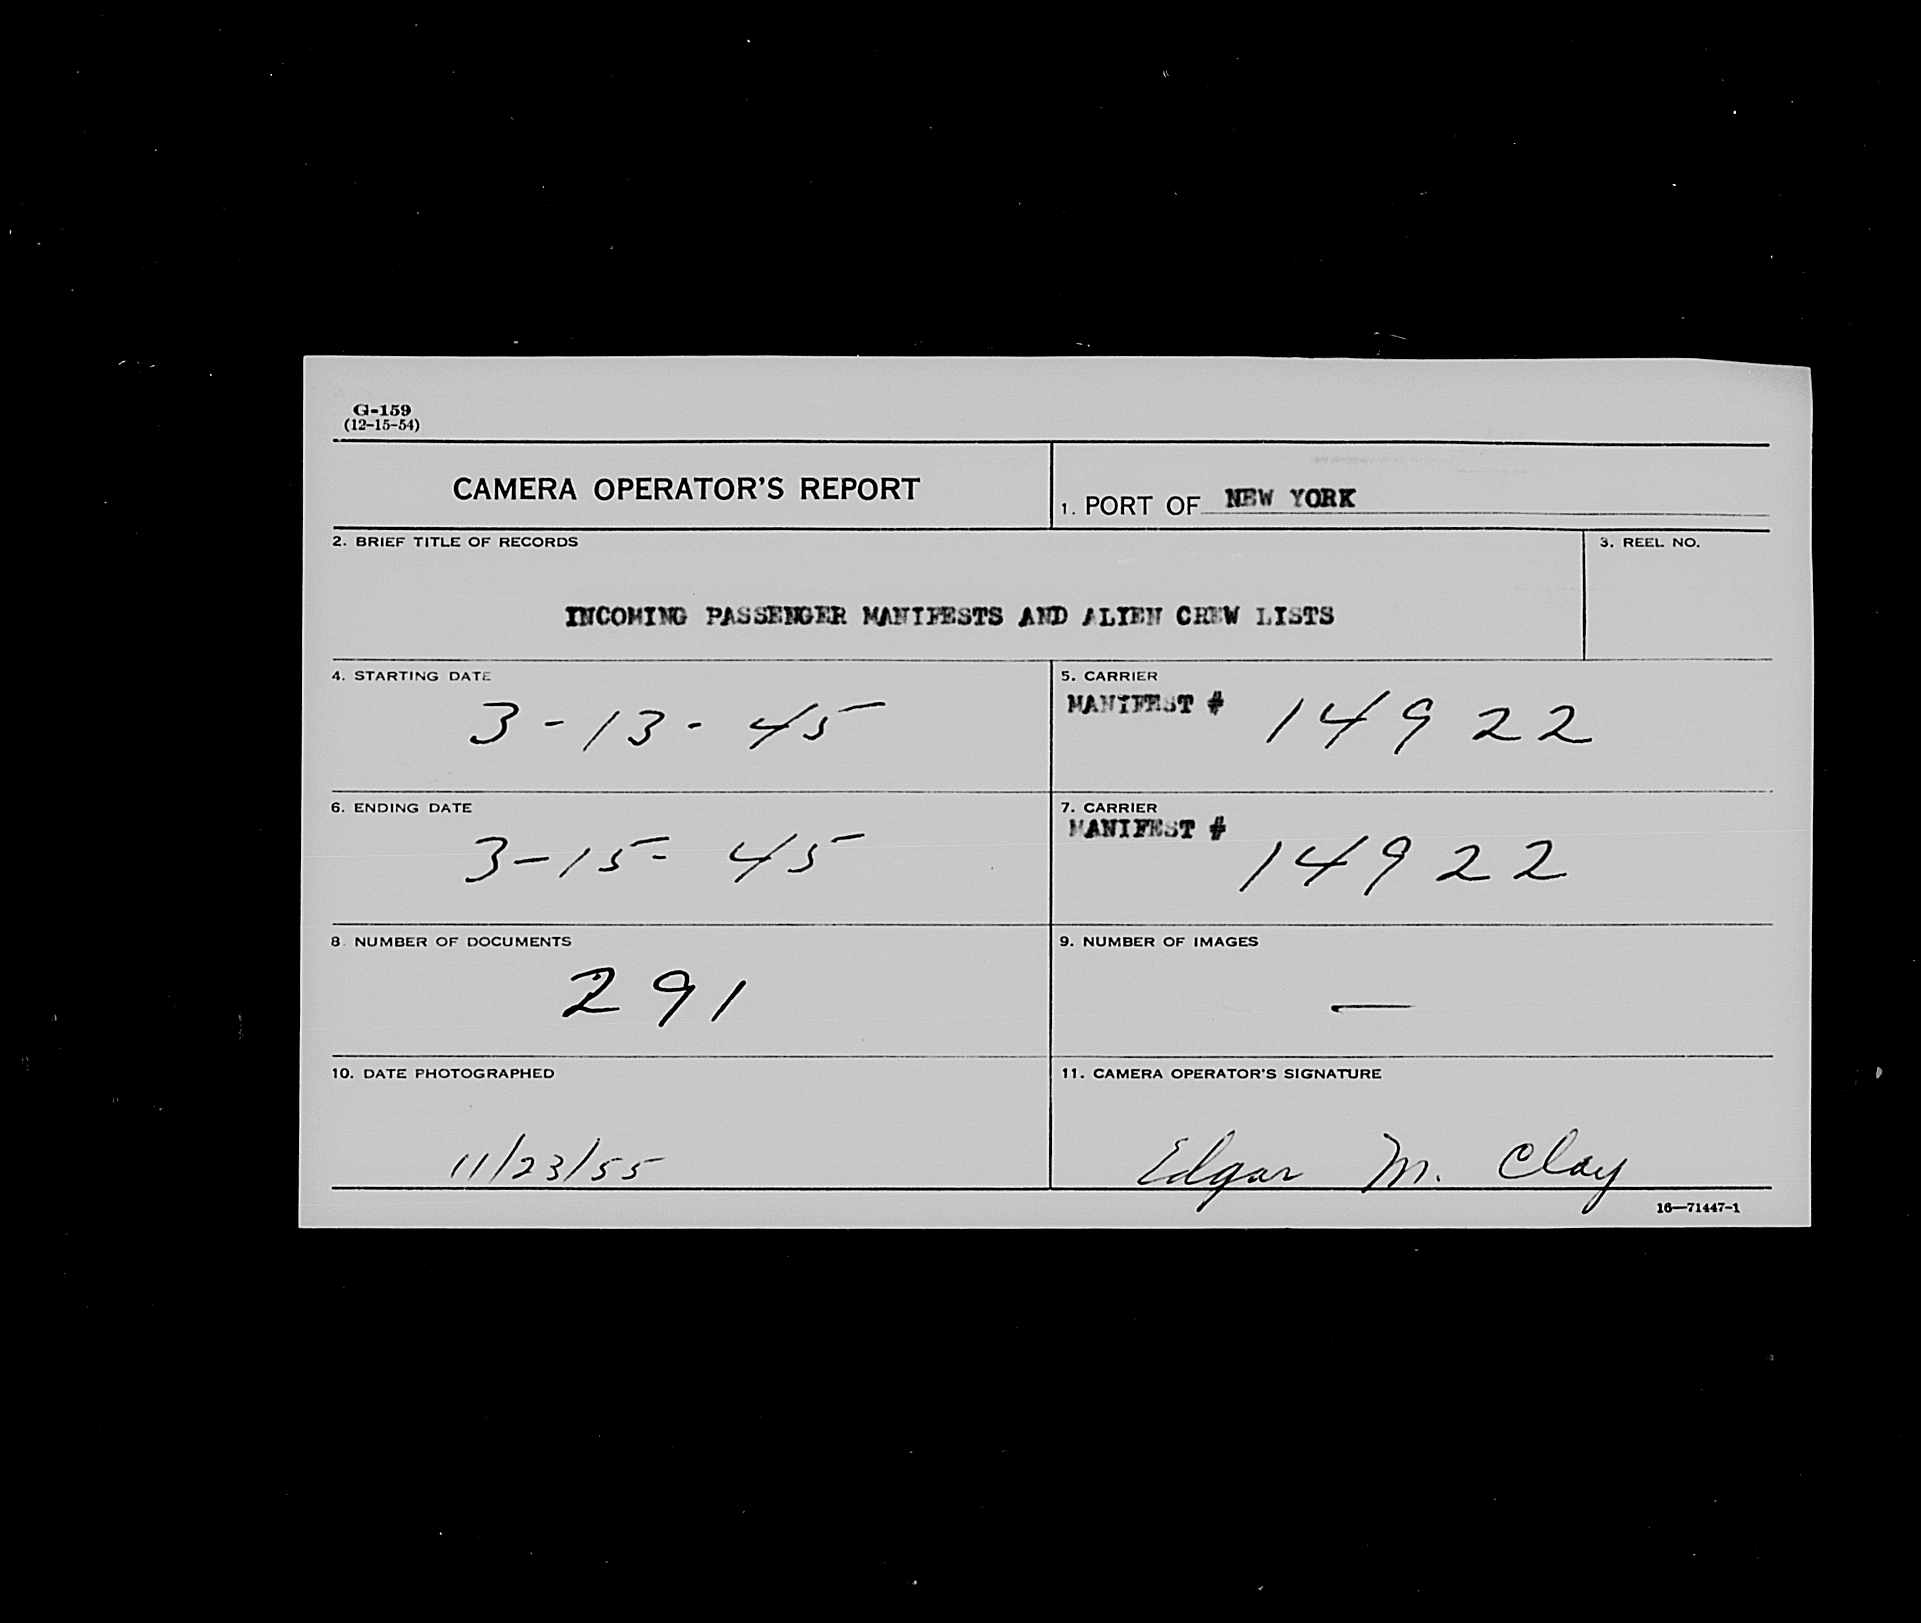 G-159
(12-15-54)
CAMERA OPERATOR'S REPORT
1. PORT OF NEW YORK
2. BRIEF TITLE OF RECORDS
3. REEL NO.
INCOMING PASSENGER MANIFESTS AND ALIEN CREW LISTS
4. STARTING DATE
3-13-45
5. CARRIER
MANIFEST # 14922
6. ENDING DATE
3-15-45
7. CARRIER
MANIFEST # 14922
8. NUMBER OF DOCUMENTS
291
9. NUMBER OF IMAGES
—
10. DATE PHOTOGRAPHED
11/23/55
11. CAMERA OPERATOR'S SIGNATURE
Edgar M. Clay
16—71447-1